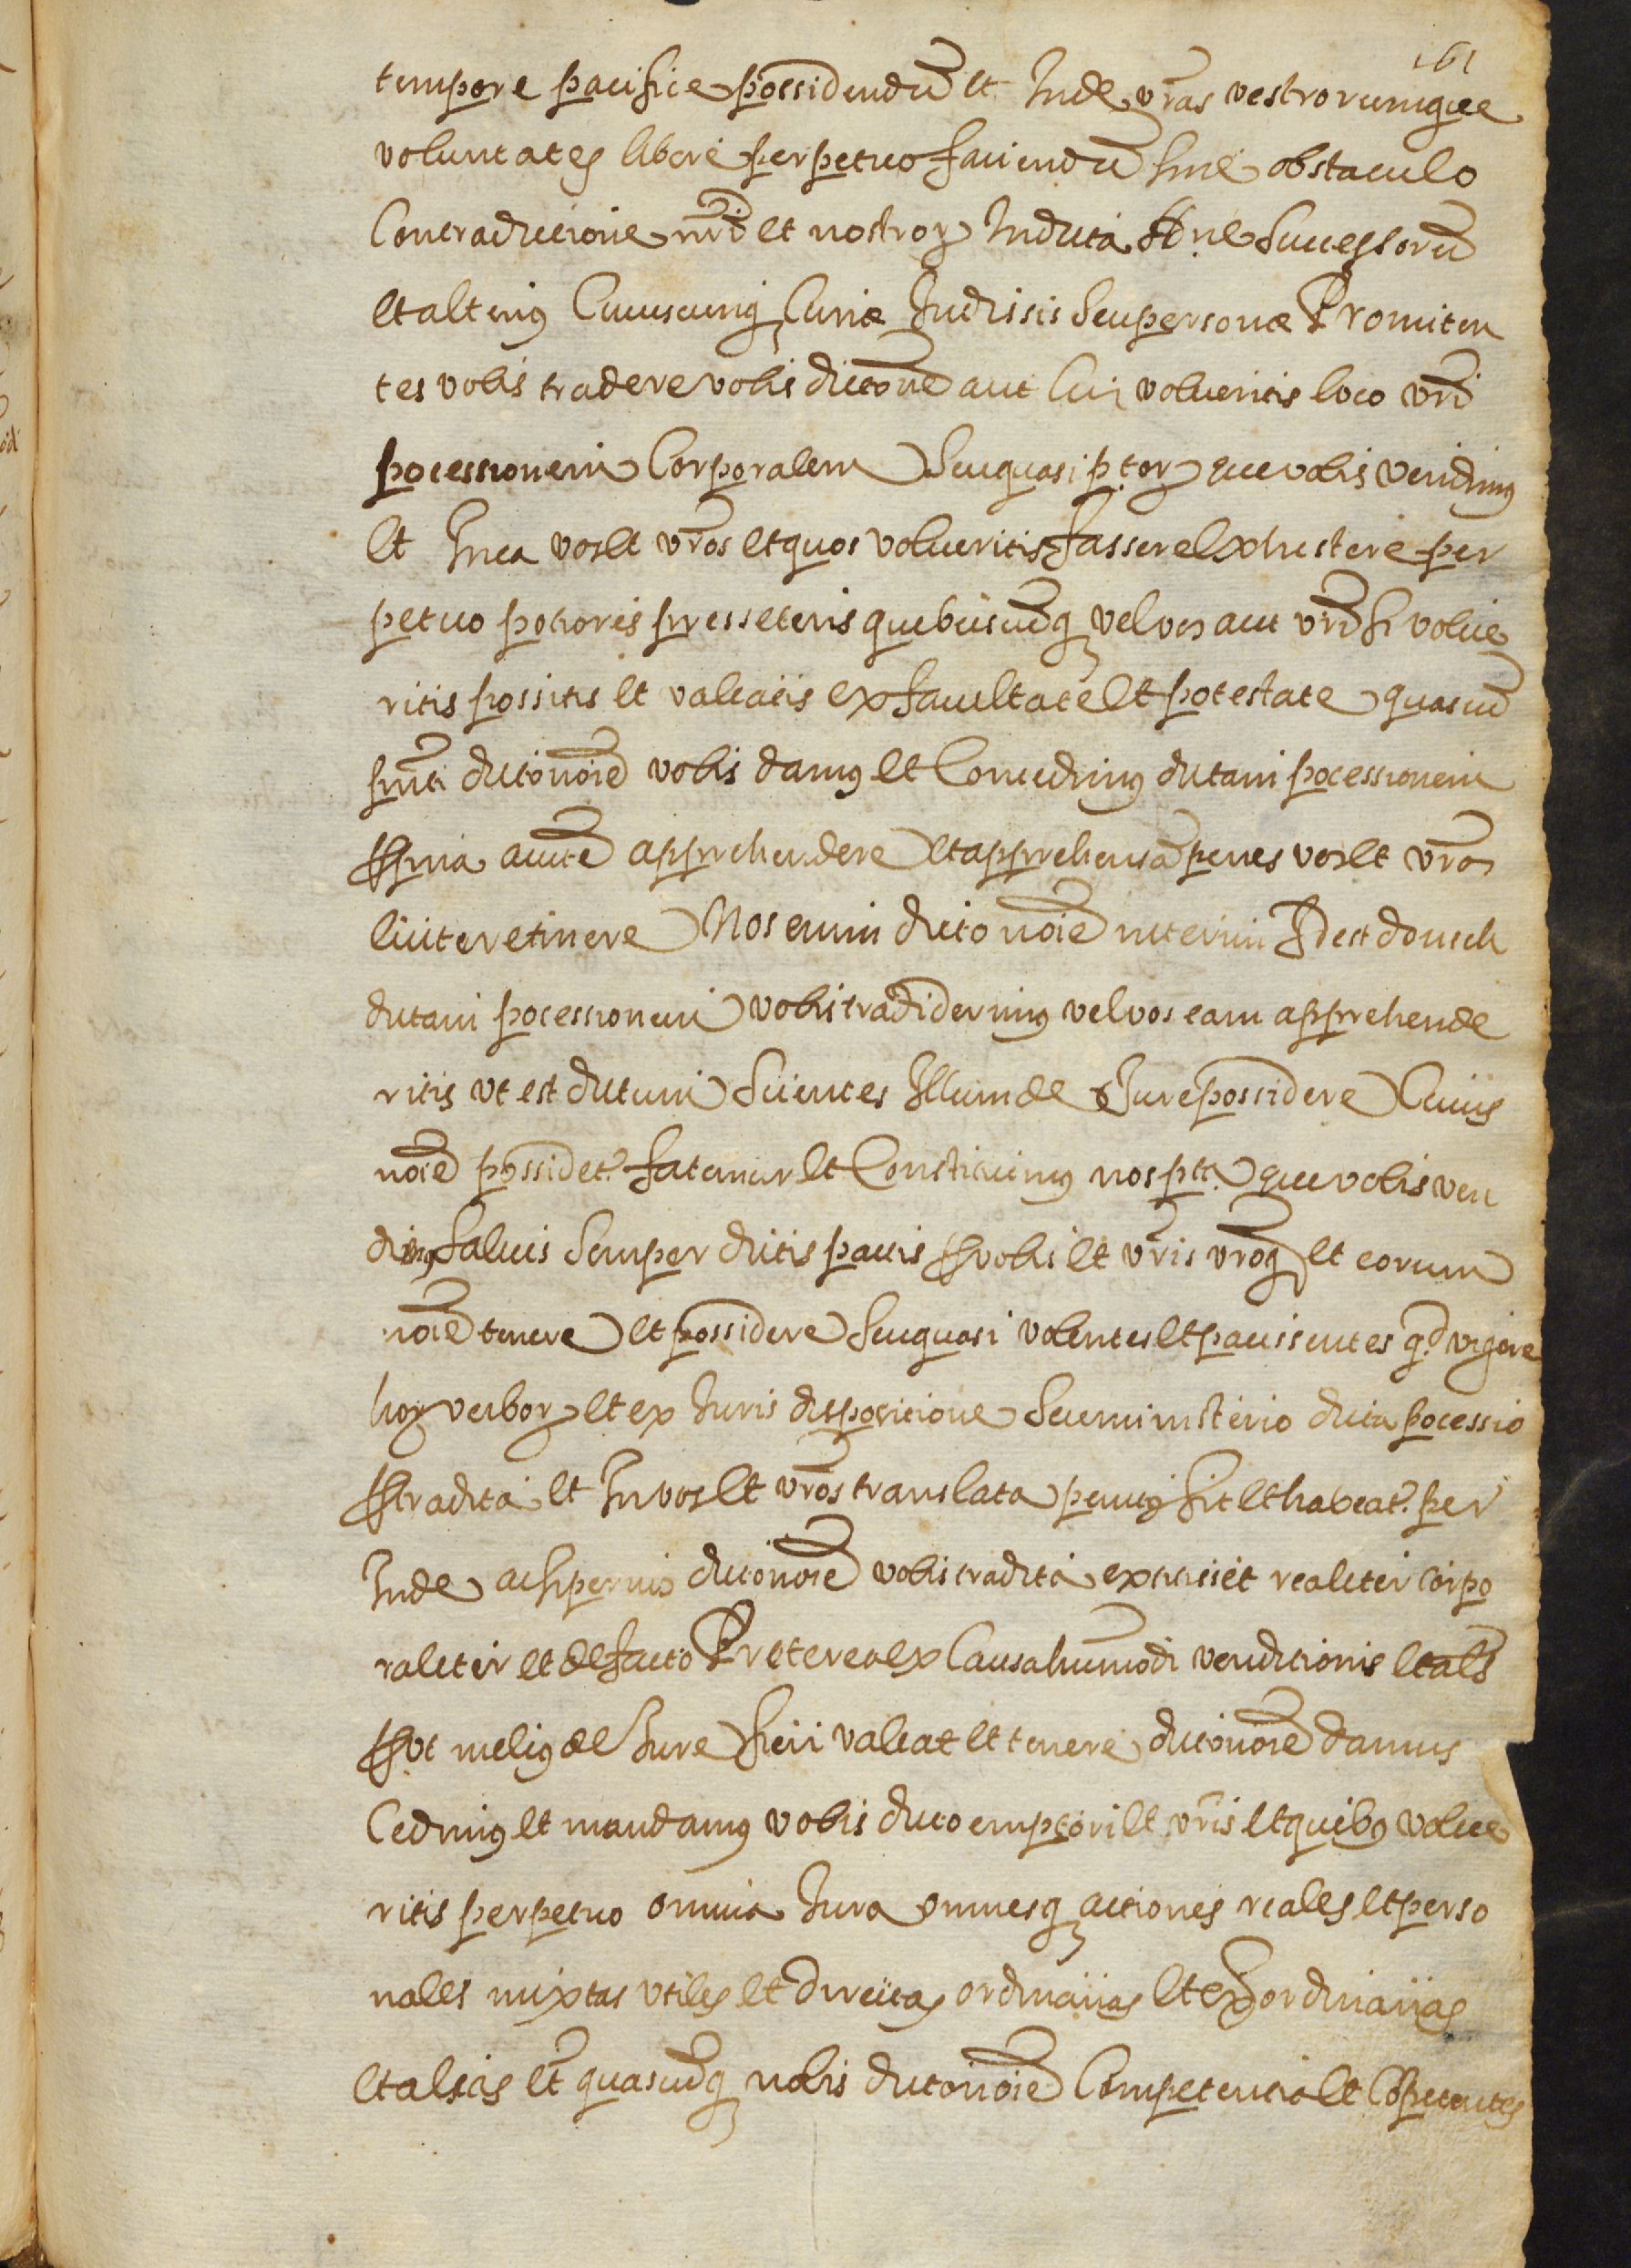 161
tempore pacifice possidendū et Inde vr̃as vestrorumque
voluntates libere perpetuo faciendū sine obstaculo
Contradictione nr̃i et nostroꝝ In dicta sõne Successorū
et alteriꝰ Cuiuscunq Curiæ Iudissis Seu personæ Promiten
tes vobis tradere vobis dicto nõe aut Cui volueritis loco vr̃i
pocessionem Corporalem Seu quasi p.torꝝ que vobis vendimꝰ
et In ea vos et vr̃os et quos volueritis fassere existere per
petuo potiores presseteris quibuscūq vel vos aut vr̃i si volue
ritis possitis et valeatis ex facultate et potestate quas cū
pñti dicto noĩe vobis damꝰ et Concedimꝰ dictam pocessionem
ꝓpria aucte apprehendere et apprehensā penes vos et vr̃os
licite retinere Nos enim dicto noĩe interim Idest donech
dictam pocessionem vobis tradiderimꝰ vel vos eam apprehende
ritis vt est dictum Scientes Illum de Iure possidere Cuius
noĩe possidet.r fatemur et Constituimꝰ nos pta. que vobis ven
dimꝰ Saluis Semper dictis pactis ꝓ vobis et vr̃is vr̃oq et eorum
noĩe tenere et possidere Seu quasi volentes et paciscentes q.d vigore
horꝝ verborꝝ et ex Iuris dispocitione Seu ministerio dicta pocessio
ꝓ tradita et In vos et vr̃os translata penitꝰ sit et habeat.r per
Inde ac si per nos dicto noĩe vobis tradita extitisiet realiter corpo
raliter et de facto Preterea ex Causa huiusmodi venditionis et als
ꝓ vt meliꝰ de Iure fieri valeat et tenere dicto noĩe damus
Cedimꝰ et mandamꝰ vobis dicto emptori et vr̃is et quibꝰ volue
ritis perpetuo omnia Iura omnesq actiones reales et perso
nales mixtas vtiles et directas ordinarias et exordinarias
et alias et quascūq nobis dicto noĩe Competentia et Cõpetentes